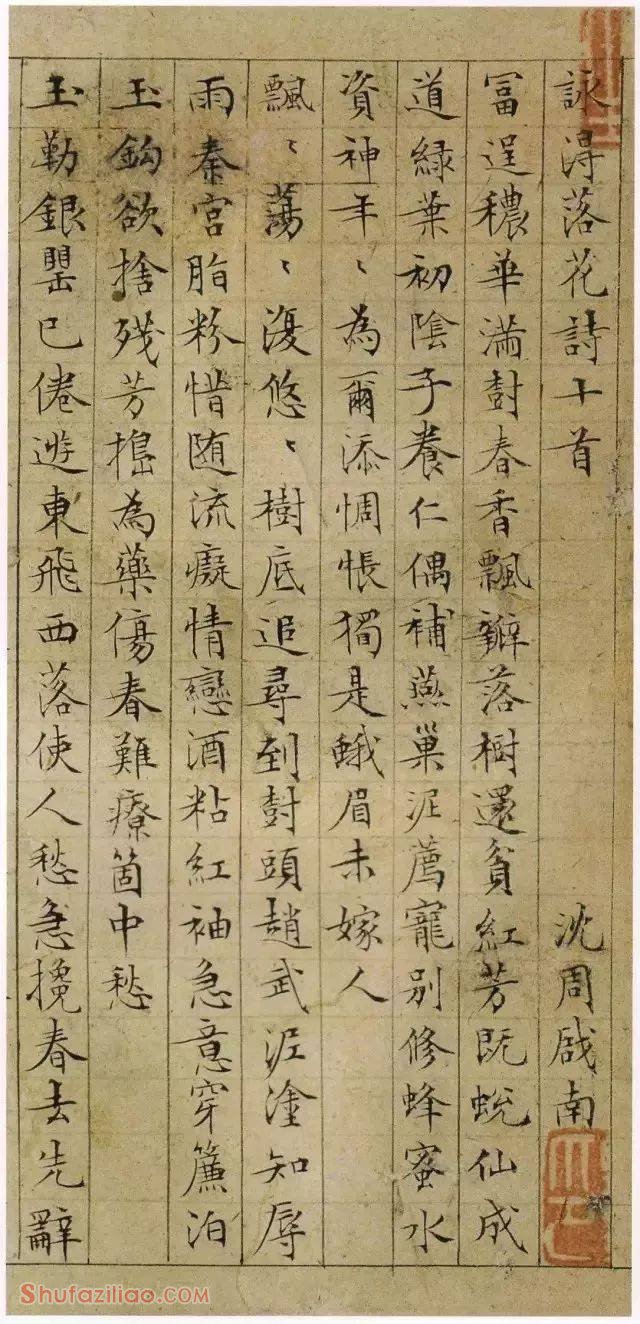 詠得落花詩十首 沈周啟南
富逞穠華滿樹春香飄瓣落樹還貧紅芳既蛻仙成
道綠葉初陰子養仁偶補燕巢泥薦寵別修蜂蜜水
資神年〻為爾添惆悵獨是蛾眉未嫁人
飄〻蕩〻復悠〻樹底追尋到樹頭趙武泥塗知辱
雨秦宮脂粉惜随流癡情戀酒粘紅袖急意穿簾泊
玉鈎欲捨殘芳搗為藥傷春難療箇中愁
玉勒銀罌已倦遊東飛西落使人愁急攙春去先辭
Shufaziliao.com